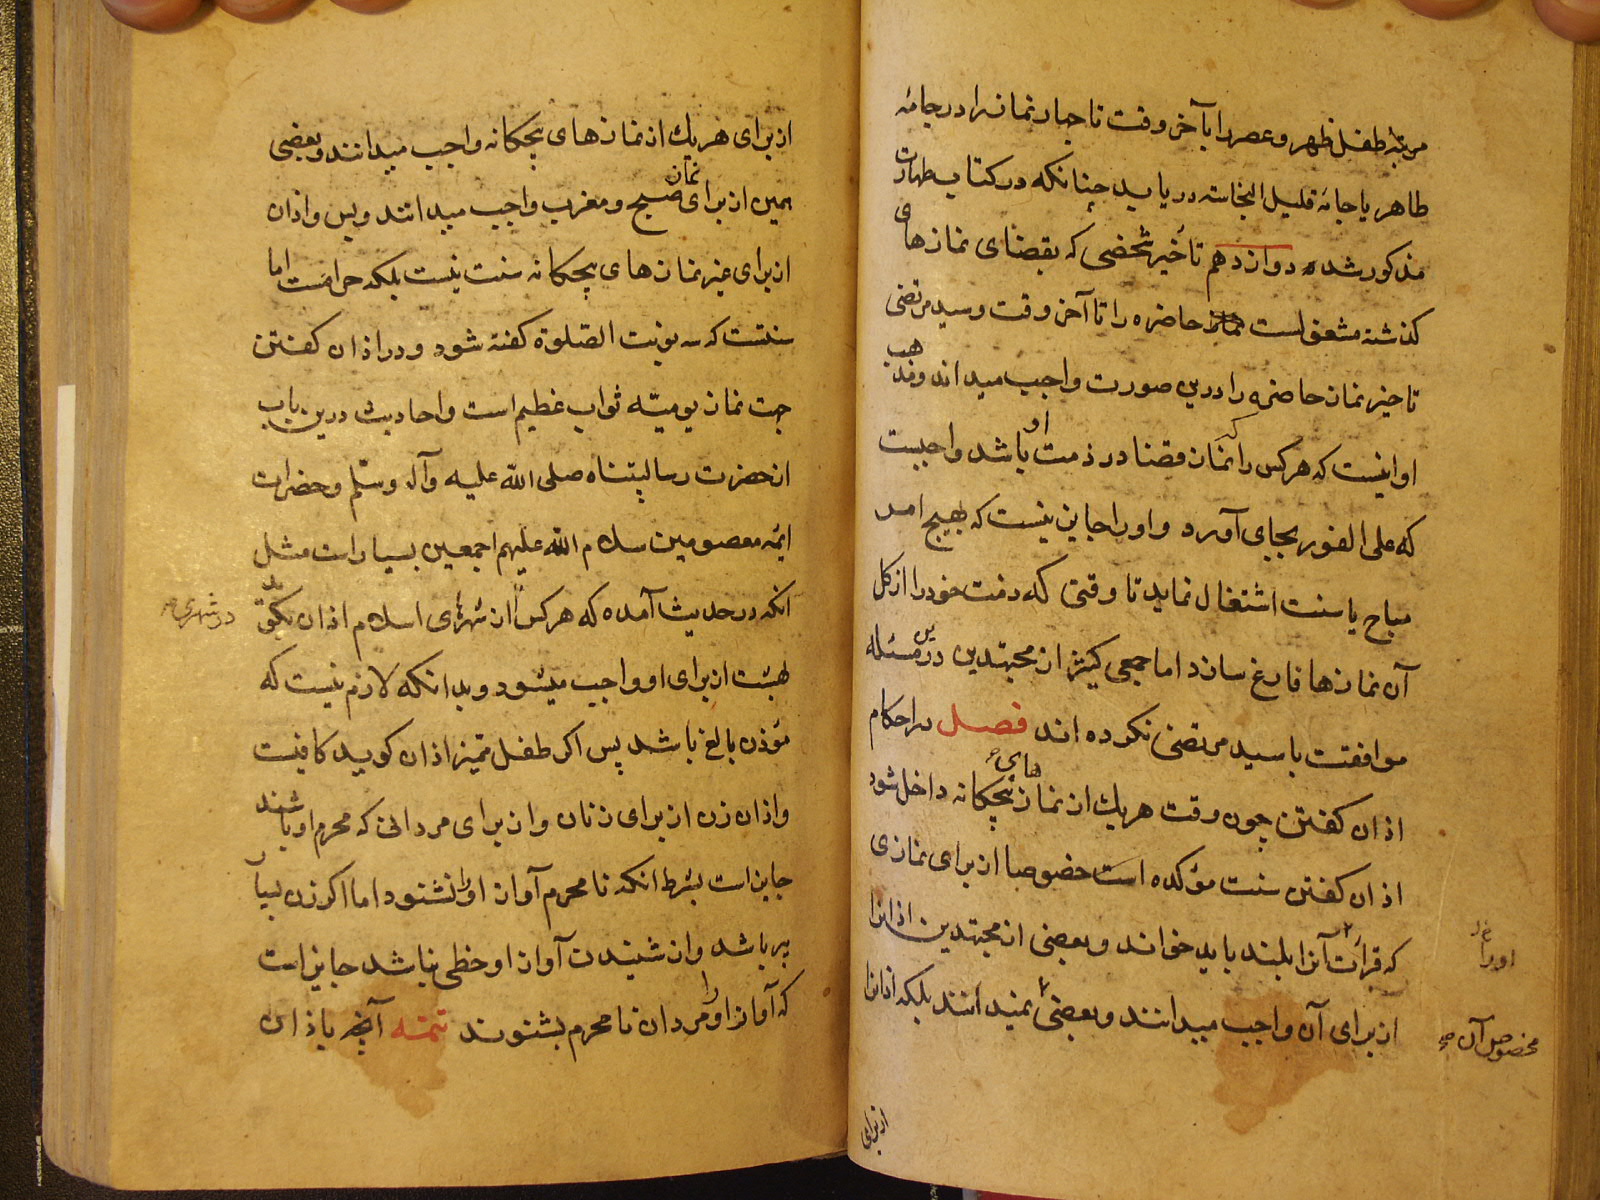 مربیهٔ طفل ظهر و عصر را بآخر وقت تا چهار نماز را در جامهٔ
طاهر یا جامهٔ قلیل النجاسه دریابد چنانکه در کتاب طهارت
مذکور شده دوازدهم تأخیر شخصی که بقضای نمازهای
کذشته مشعوفست حاضره را تا آخر وقت و سید مرتضی
تاخیر نماز حاضره را درین صورت واجب میداند و مذهب
او اینست که هر کس را که نماز قضا در ذمت او باشد واجبست
که علی الفور بجای آورد و او را جایز نیست که بهیچ امر
مباح یا سنت اشتغال نماید تا وقتی که ذمت خود را از کل
آن نمازها فارغ سازد اما جمعی کثیر از مجتهدین درین مسئله
موافقت با سید مرتضی نکرده اند فصل در احکام
اذان کفتن چون وقت هر یک از نمازهای پنجکانه داخل شود
اذان کفتن سنت مؤکده است خصوصا از برای نمازی
که قرائت آنرا بلند باید خواند و بعضی از مجتهدین اذانرا
از برای آن واجب میدانند و بعضی نمیدانند بلکه اذانرا
اورا
مخصوص آن صح
از برای
از برای هر یک از نمازهای پنجکانه واجب میدانند و بعضی
همین از برای نماز صبح و مغرب واجب میدانند و بس و اذان
از برای غیر نمازهای پنجکانه سنت نیست بلکه حرامست اما
سنتست که سه نوبت الصلوة کفته شود و در اذان کفتن
جهت نماز یومیّه ثواب عظیم است و احادیث درین باب
از حضرت رسالتپناه صلی الله علیه وآله وسلم و حضرات
ایمهٔ معصومین سلام الله علیهم اجمعین بسیار است مثل
آنکه در حدیث آمده که هر کس از شهرهای اسلام اذان بکوید
در شهری صح
بهشت از برای او واجب میشود و بدانکه لازم نیست که
مؤذن بالغ باشد پس اکر طفل ممیز اذان کوید کافیست
و اذان زن از برای زنان و از برای مردانی که محرم او باشند
جایز است بشرط آنکه نامحرم آواز او را نشنود اما اکر زن بسیار
پیر باشد و از شنیدن آواز او حظی نباشد جایز است
که آواز او را مردان نامحرم بشنوند تتمه آنچه باذان